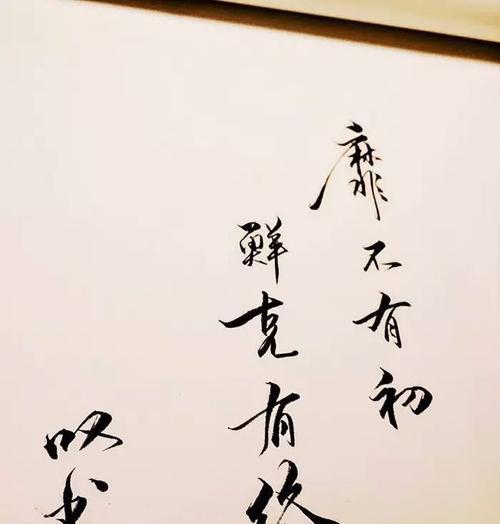 靡不有初
鲜克有终
叹